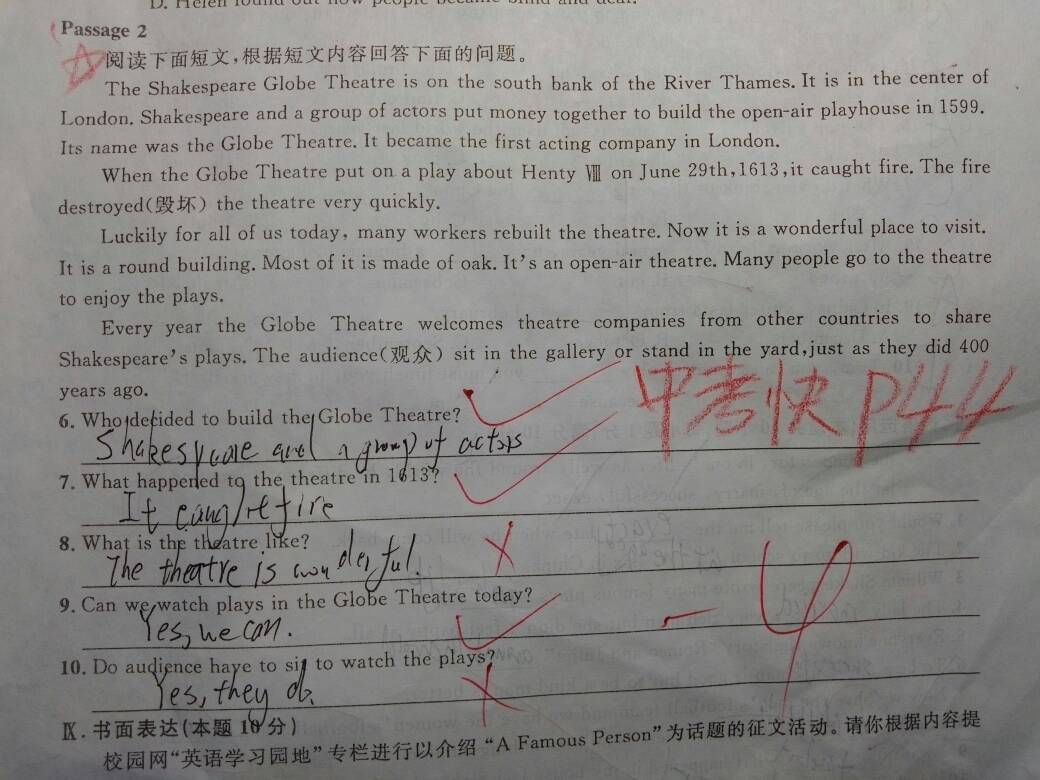 D. Helen found out how people became blind and deaf.
Passage 2
阅读下面短文,根据短文内容回答下面的问题。
The Shakespeare Globe Theatre is on the south bank of the River Thames. It is in the center of
London. Shakespeare and a group of actors put money together to build the open-air playhouse in 1599.
Its name was the Globe Theatre. It became the first acting company in London.
When the Globe Theatre put on a play about Henty Ⅷ on June 29th,1613,it caught fire. The fire
destroyed(毁坏) the theatre very quickly.
Luckily for all of us today, many workers rebuilt the theatre. Now it is a wonderful place to visit.
It is a round building. Most of it is made of oak. It's an open-air theatre. Many people go to the theatre
to enjoy the plays.
Every year the Globe Theatre welcomes theatre companies from other countries to share
Shakespeare's plays. The audience(观众) sit in the gallery or stand in the yard,just as they did 400
years ago.
中考快 P44
6. Who decided to build the Globe Theatre?
Shakespeare and a group of actors
7. What happened to the theatre in 1613?
It caught fire
8. What is the theatre like?
The theatre is wonderful.
9. Can we watch plays in the Globe Theatre today?
Yes, we can.
-4
10. Do audience have to sit to watch the plays?
Yes, they do.
Ⅸ. 书面表达(本题 10 分)
校园网“英语学习园地”专栏进行以介绍“A Famous Person”为话题的征文活动。请你根据内容提